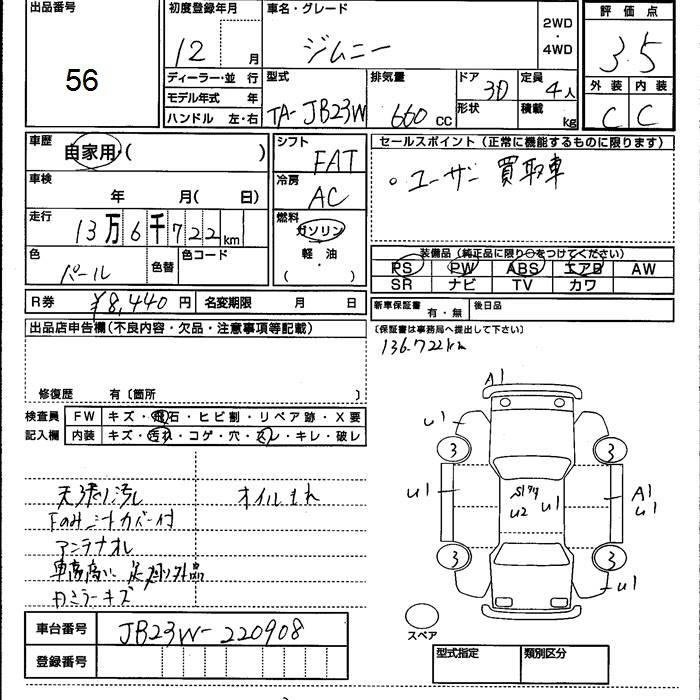 出品番号
56
初度登録年月
12 月
車名・グレード
ジムニー
2WD
・
4WD
評価点
3.5
ディーラー・並 行
モデル年式 年
ハンドル 左・右
型式
TA-JB23W
排気量
660 cc
ドア
3D
形状
定員
4人
積載
kg
外装
内装
C
C
車歴
自家用・( )
シフト
FAT
セールスポイント (正常に機能するものに限ります)
。ユーザー買取車
車検
年 月( 日)
冷房
AC
走行
13万6千722km
燃料
ガソリン
軽・油
・( )
色
パール
色替
色コード
装備品 (純正品に限り○をつけてください)
PS PW ABS エアB AW
SR ナビ TV カワ
R券 ¥8,440円 名変期限 月 日
新車保証書
有・無
後日品
(保証書は事務局へ提出して下さい)
136.722km
出品店申告欄(不良内容・欠品・注意事項等記載)
修復歴 有〔箇所 〕
検査員
記入欄
FW キズ・飛石・ヒビ割・リペア跡・X要
内装 キズ・汚れ・コゲ・穴・スレ・キレ・破レ
天張り汚れ
オイルもれ
Fのみシートカバー付
アンテナオレ
車高高い 足廻り外品
ミラーキズ
A1
u1
u1
3
3
u1
u2
u1
A1
u1
3
3
u1
スペア
車台番号 JB23W-220908
登録番号
型式指定
類別区分